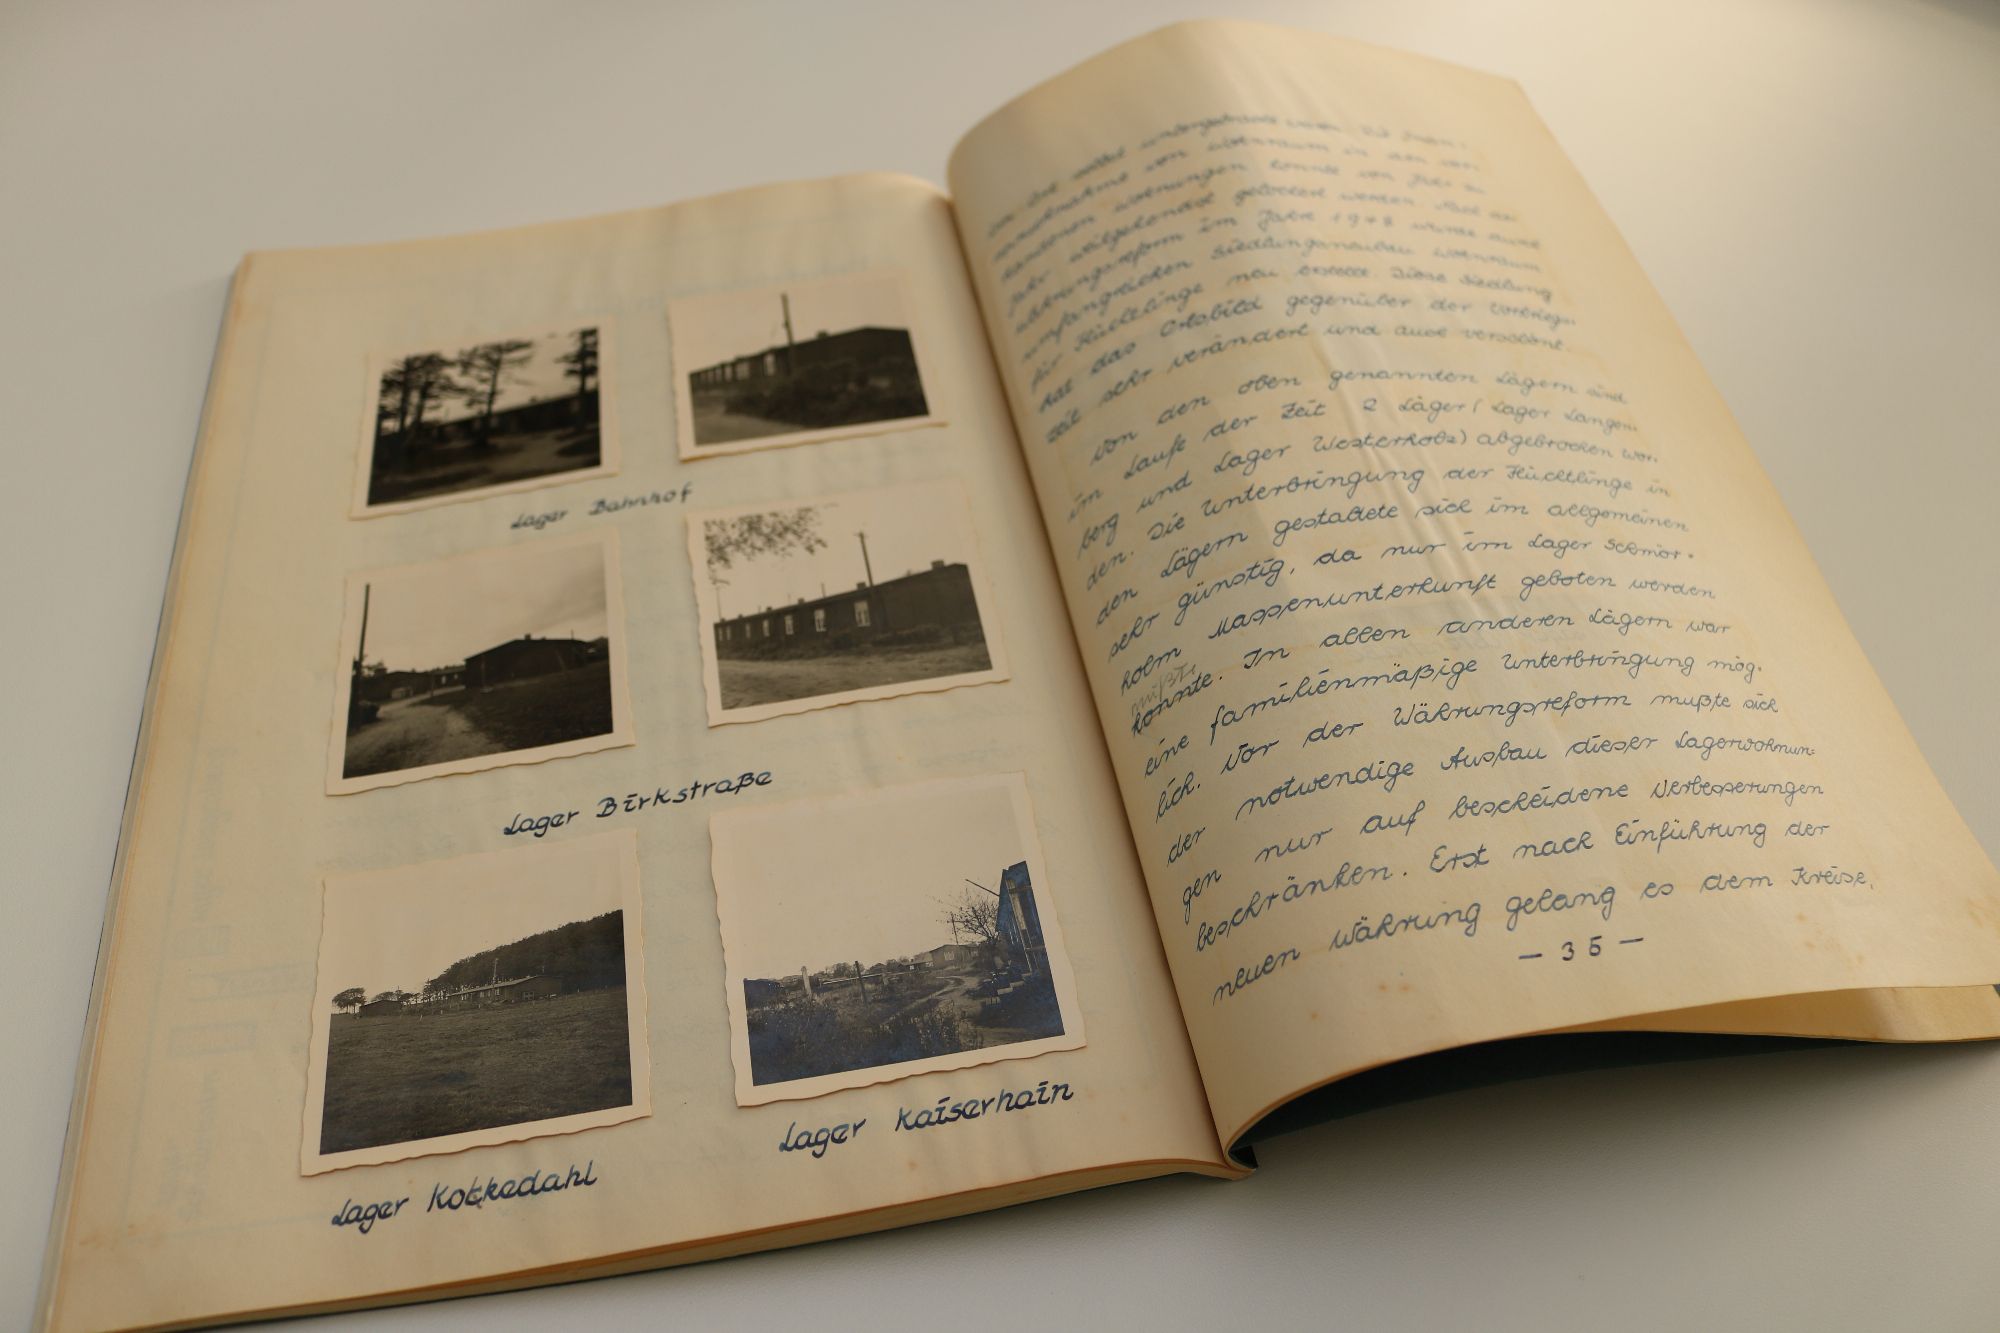 Lager Bahnhof
Lager Birkstraße
Lager Kokkedahl
Lager Kaiserhain
untergebracht
von Wohnraum in den
Wohnungen konnte von Jahr zu
Jahr weitgehendst gelockert werden. Nach der
Währungsreform im Jahre 1948 wurde durch
umfangreichen Siedlungsneubau Wohnraum
für Flüchtlinge neu erstellt. Diese Siedlung
hat das Ortsbild gegenüber der Vorkriegs-
zeit sehr verändert und auch verschönt.
Von den oben genannten Lägern sind
im Laufe der Zeit 2 Läger (Lager Langen-
berg und Lager Westerholz) abgebrochen wor-
den. Die Unterbringung der Flüchtlinge in
den Lägern gestaltete sich im allgemeinen
sehr günstig, da nur im Lager Schmör-
holm Massenunterkunft geboten werden
mußte
konnte. In allen anderen Lägern war
eine familienmäßige Unterbringung mög-
lich. Vor der Währungsreform mußte sich
der notwendige Ausbau dieser Lagerwohnun-
gen nur auf bescheidene Verbesserungen
beschränken. Erst nach Einführung der
neuen Währung gelang es dem Kreise,
— 35 —